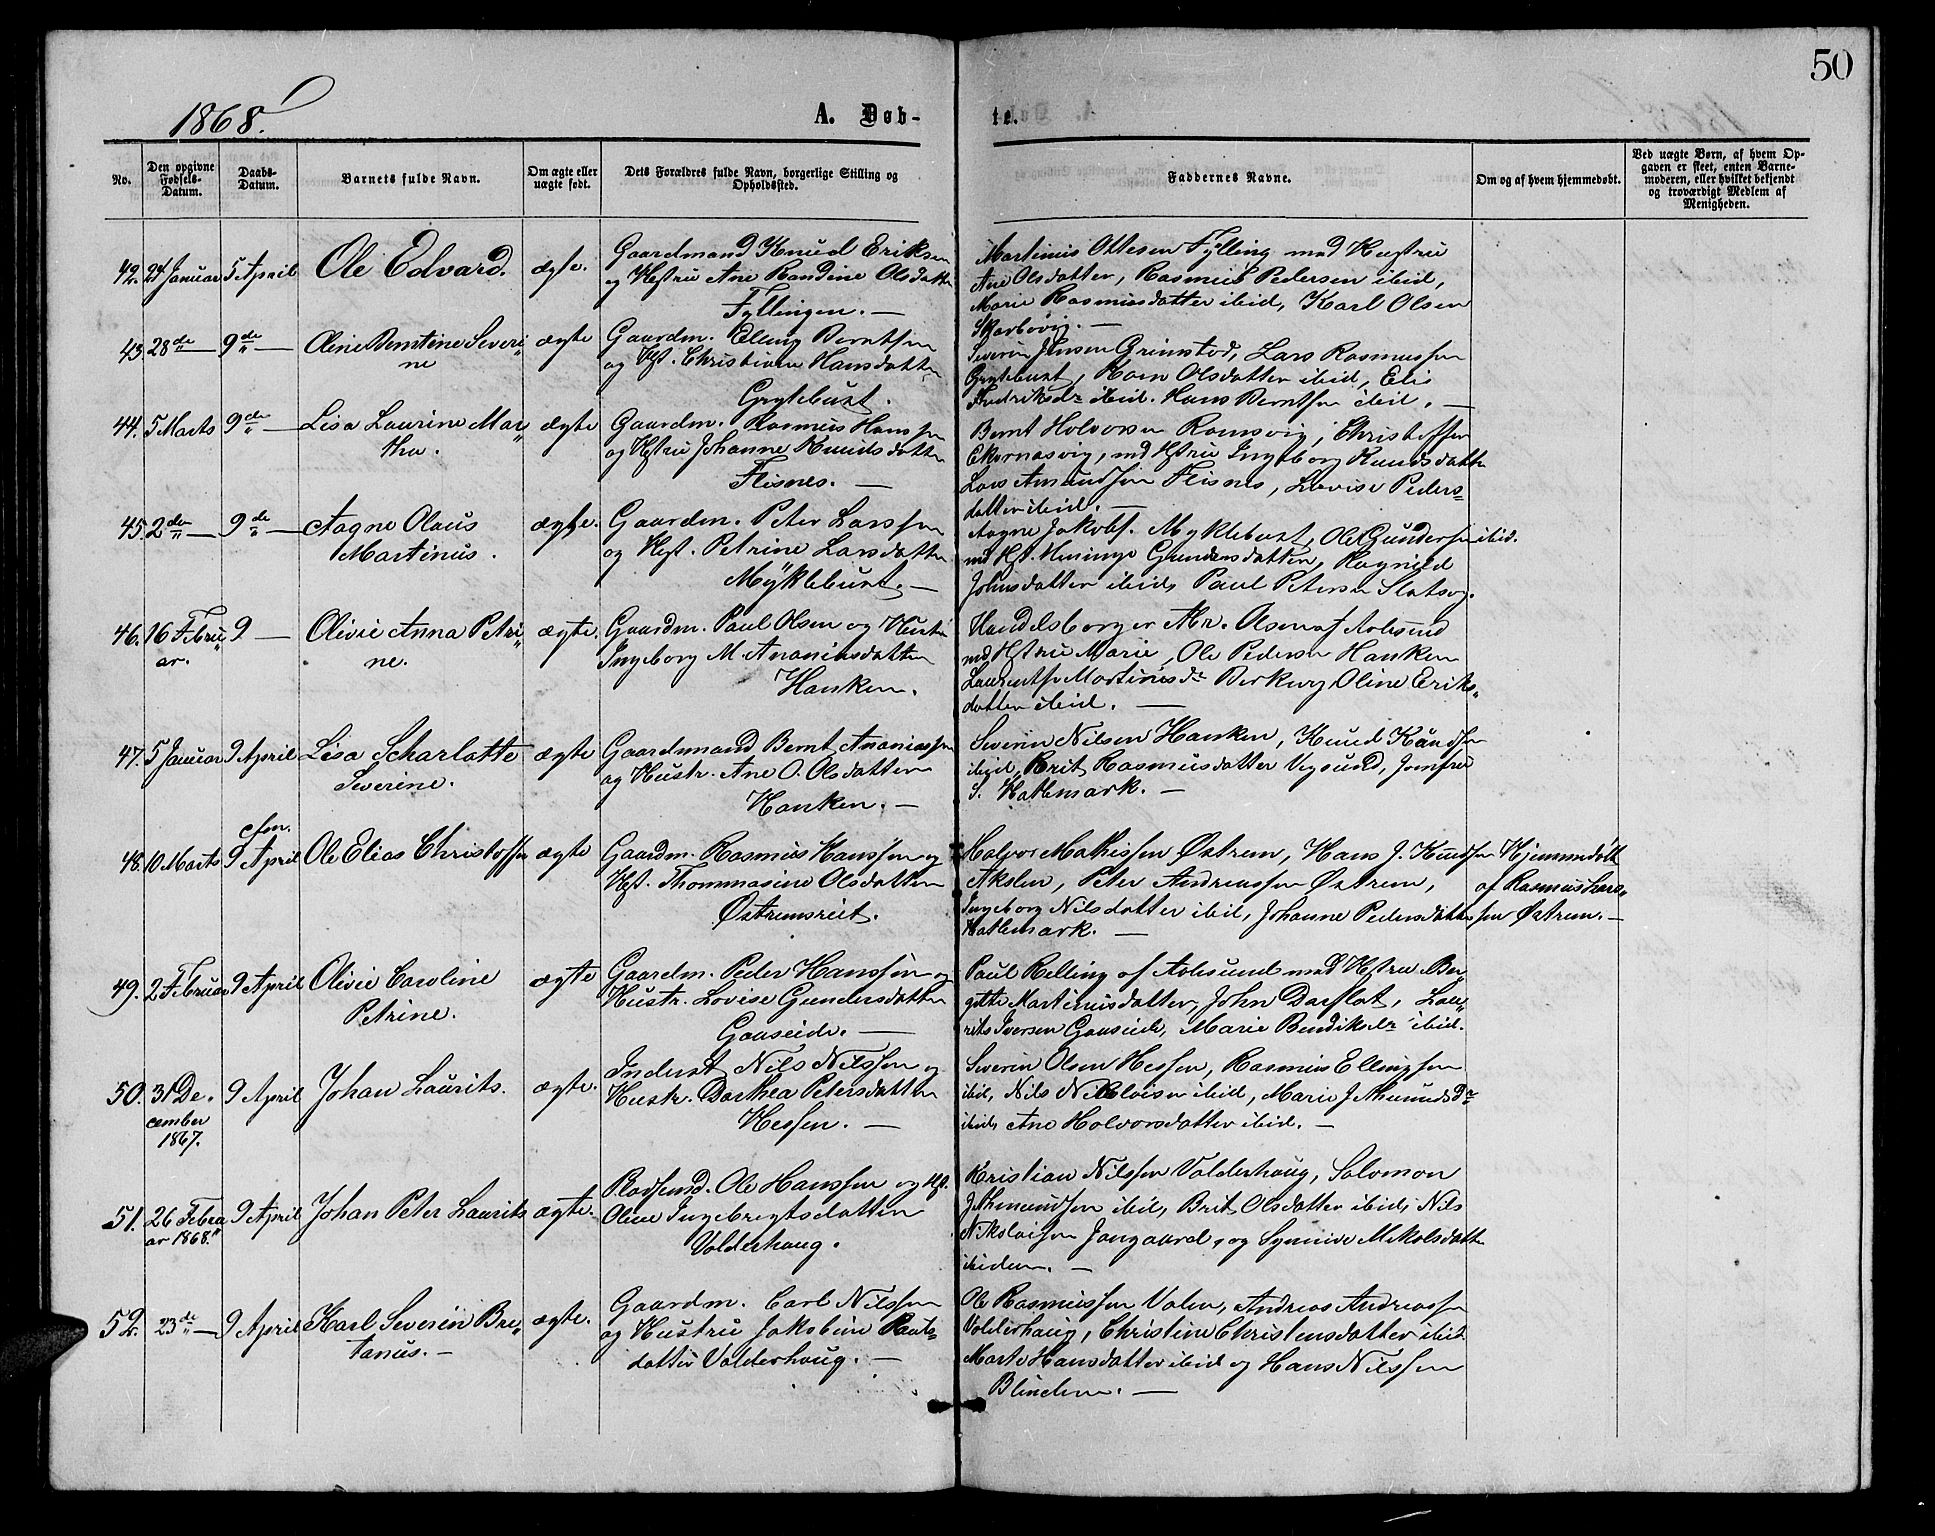 50
1868.
A. Døb-
te.
No.
Den opgivne Fødsels-Datum.
Daabs-Datum.
Barnets fulde Navn.
Om ægte eller uægte født.
Dets Forældres fulde Navn, borgerlige Stilling og Opholdssted.
Faddernes Navne.
Om og af hvem hjemmedøbt.
Ved uægte Børn, af hvem Opgaven er skeet, enten Barnemoderen, eller hvilket bekjendt og troværdigt Medlem af Menigheden.
42. 24 Januar 5 April Ole Edvard. ægte.
Gaardmand Knud Eriksen
og Hstru Ane Randine Olsdatter
Fyllingen. —
Martinus Ottesen Fylling med Hustru
Ane Olsdatter, Rasmus Pedersen ibid,
Marie Rasmusdatter ibid, Karl Olsen
Skarbøvig. —
43. 28de — 9de — Oline Berntine Severi„
ne
ægte
Gaardm. Elling Berntsen
og Hst. Christiane Hansdatter
Grytebust.
Severin Jensen Grimstad, Lars Rasmussen
Grytebust, Karn Olsdatter ibid, Elis
Hendriksdr ibid. Hans Berntsen ibid. —
44. 5 Marts 9de — Lisa Laurine Mar„
tha.
ægte
Gaardm. Rasmus Hanssen
og Hstru Johanne Knudsdatter
Flisnes. —
Bernt Halvorsen Ramsvig, Christoffer
Ekornæsvig, md Hstru Ingeborg Knudsdatter
Lars Amundsen Flisnes, Lovise Peders-
datter ibid. —
45. 2den — 9de — Aagne Olaus
Martinus.
ægte.
Gaardm. Peter Larssen
og Hst. Petrine Larsdatter
Myklebust. —
Aagne Jakobs. Myklebust, Ole Gundersen ibid.
md Hst. Gundersdatter, Ragnild
Johnsdatter ibid, Paul Petersen
46. 16 Febru„
ar.
9 — Olivie Anna Petri„
ne.
ægte.
Gaardm. Paul Olsen og Hustru
Ingeborg M. Ananiasdatter
Hanken.
Handelsborger Olsen af Aalesund
md Hstru Marie, Ole Pedersen Hanken
Martinusdr Oline Eriks„
datter ibid. —
47. 5 Januar 9 April Lisa Scharlotte
Severine.
ægte
Gaardmand Bernt Ananiassen
og Hustr. Ane O. Olsdatter
Hanken. —
Severin Nilsen Hanken, Knud Knudsen
ibid, Brit Rasmusdatter Vegsund, Jomfru
S. Hatlemark. —
48. 10 Marts 9 April Ole Elias Christoffer ægte
Gaardm. Rasmus Hanssen og
Hst. Thommasine Olsdatter
Østremsreit.
Halvor Mathissen Østrem, Hans J. Knudsen
Akslen, Peter Andreassen Østrem,
Ingeborg Nilsdatter ibid, Johanne Pedersdatter
Hatlemark. —
Hjemmedøbt
af Rasmus Lars„
sen Østrem. —
49. 2 Februar 9 April Olivie Caroline
Petrine.
ægte
Gaardm. Peder Hanssen og
Hustr. Lovise Gundersdatter
Gaaseide. —
Paul Relling af Aalesund med Hstru Ber„
gitte Martinusdatter, John Darflot, Lau„
rits Iversen Gaaseide, Marie Bendiksdr ibid.
50. 31 De„
cember
1867.
9 April Johan Laurits. ægte.
Inderst Nils Nilssen og
Hustr. Dorthea Petersdatter
Hessen. —
Severin Olsen Hessen, Rasmus Ellingsen
ibid, Nils Nikolaisen ibid, Marie J Amundsdr
ibid, Ane Halvorsdatter ibid. —
51. 26 Febru
ar 1868.
9 April Johan Peter Laurits ægte.
Pladsmd. Ole Hanssen og Hst.
Oline Ingebregtsdatter
Valderhaug.
Kristian Nilssen Valderhaug, Salomon
J Amundsen ibid, Brit Olsdatter ibid, Nils
Nikolaisen Jangaard, og Synnive Mikolsdatter
ibidem. —
52. 23de — 9 April Karl Severin Bre„
tanus. —
ægte.
Gaardm. Carl Nilssen
og Hustru Jakobine Knuts-
datter Valderhaug. —
Ole Rasmussen Valen, Andreas Andreassen
Valderhaug, Christine Christensdatter ibid
Marte Hansdatter ibid og Hans Nilssen
Blindem. —